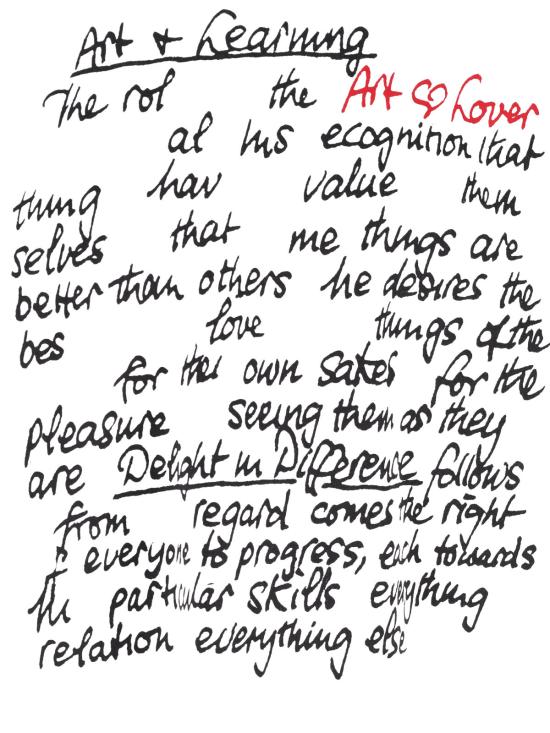 Art + Learning
The rol the Art ♡ Lover
al his ecognition that
thing hav value them
selves that me things are
better than others he desires the
bes love things of the
for thei own sakes for the
pleasure seeing them as they
are Delight in Difference follows
from regard comes the right
f everyone to progress, each towards
th particular skills everything
relation everything else